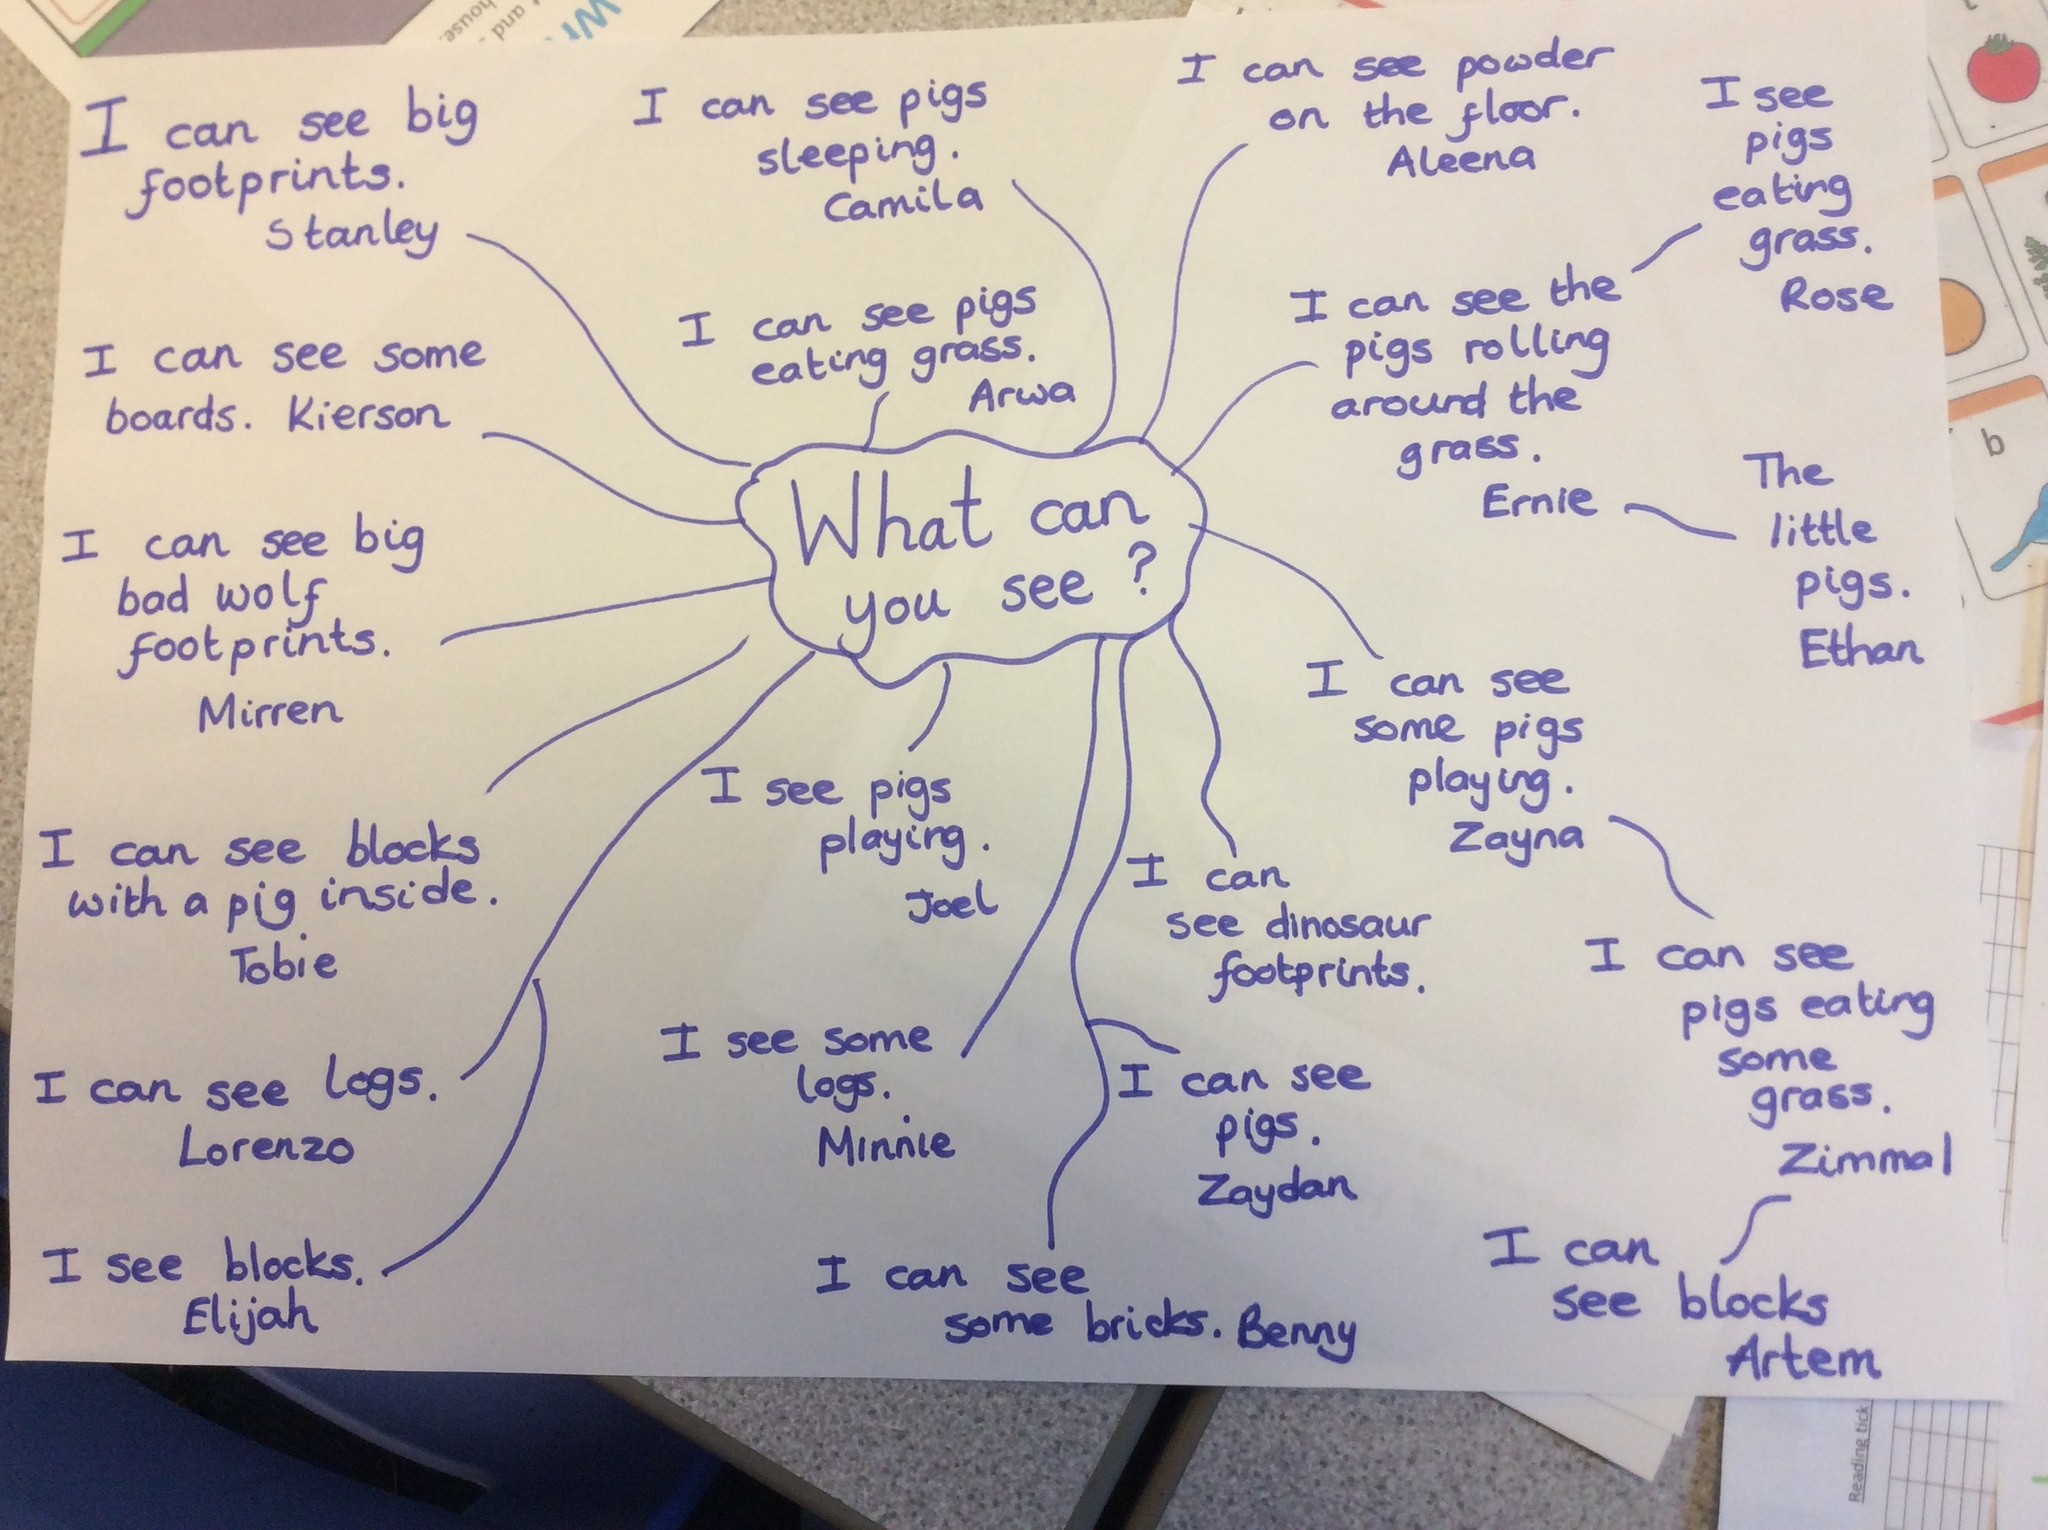 I can see big
footprints.
Stanley
I can see pigs
sleeping.
Camila
I can see powder
on the floor.
Aleena
I see
pigs
eating
grass.
Rose
I can see some
boards. Kierson
I can see pigs
eating grass.
Arwa
I can see the
pigs rolling
around the
grass.
Ernie
The
little
pigs.
Ethan
What can
you see?
I can see big
bad wolf
footprints.
Mirren
I can see
some pigs
playing.
Zayna
I can see blocks
with a pig inside.
Tobie
I see pigs
playing.
Joel
I can
see dinosaur
footprints.
I can see
pigs eating
some
grass.
Zimmal
I can see logs.
Lorenzo
I see some
logs.
Minnie
I can see
pigs.
Zaydan
I see blocks.
Elijah
I can see
some bricks. Benny
I can
see blocks
Artem
b
and
house.
Reading tick